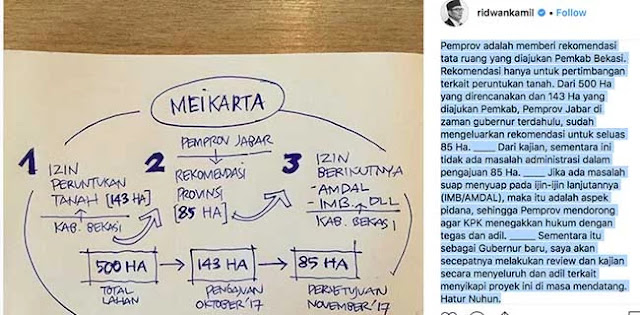 MEIKARTA
1 IZIN PERUNTUKAN
TANAH [143 HA]
KAB. BEKASI
2 PEMPROV JABAR
REKOMENDASI
PROVINSI
[85 HA]
3 IZIN
BERIKUTNYA
- AMDAL
- IMB. DLL
KAB. BEKASI
500 HA
TOTAL
LAHAN
143 HA
PENGAJUAN
OKTOBER '17
85 HA
PERSETUJUAN
NOVEMBER '17
ridwankamil • Follow
Pemprov adalah memberi rekomendasi
tata ruang yang diajukan Pemkab Bekasi.
Rekomendasi hanya untuk pertimbangan
terkait peruntukan tanah. Dari 500 Ha
yang direncanakan dan 143 Ha yang
diajukan Pemkab, Pemprov Jabar di
zaman gubernur terdahulu, sudah
mengeluarkan rekomendasi untuk seluas
85 Ha. _____ Dari kajian, sementara ini
tidak ada masalah administrasi dalam
pengajuan 85 Ha. _____ Jika ada masalah
suap menyuap pada ijin-ijin lanjutannya
(IMB/AMDAL), maka itu adalah aspek
pidana, sehingga Pemprov mendorong
agar KPK menegakkan hukum dengan
tegas dan adil. _____ Sementara itu
sebagai Gubernur baru, saya akan
secepatnya melakukan review dan kajian
secara menyeluruh dan adil terkait
menyikapi proyek ini di masa mendatang.
Hatur Nuhun.